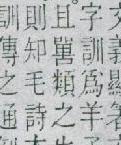 文義顯箸
字訓爲羊
且嘼類之
則知毛詩
訓傳之通